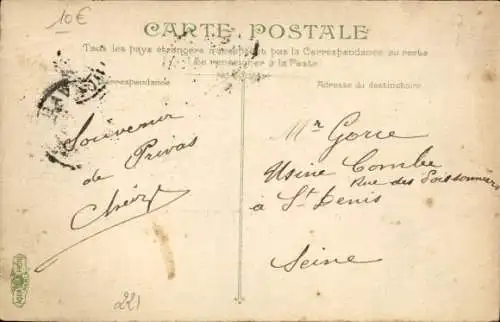 10€
CARTE POSTALE
Tous les pays étrangers n'acceptent pas la Correspondance au recto
Se renseigner à la Poste
Correspondance
Adresse du destinataire
Souvenir
de Privas
Mr Gorce
Usine Combe
Rue des Poissonniers
à St Denis
Seine
221